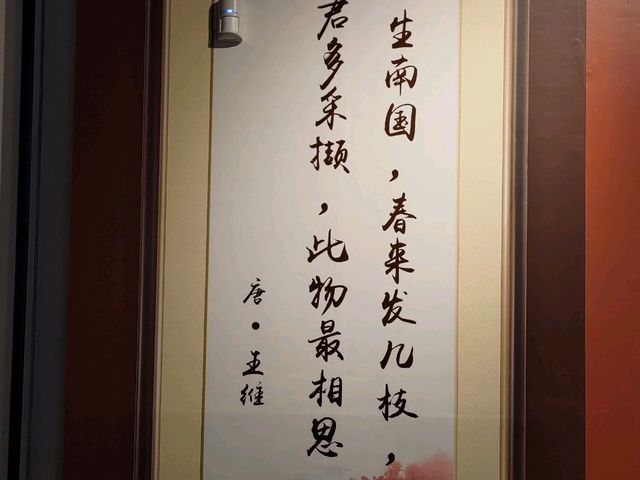 生南国，春来发几枝，
君多采撷，此物最相思
唐·王维